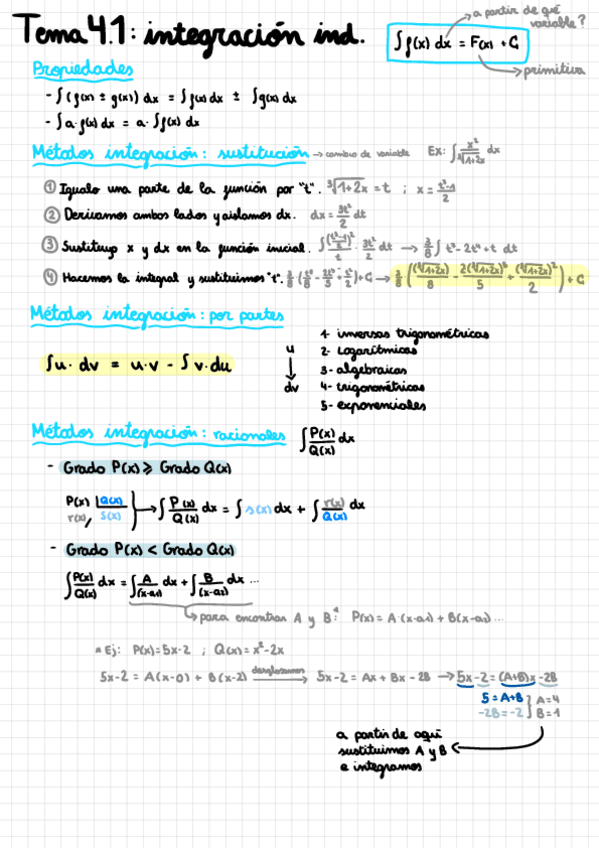 Tema 4.1: integración ind.
∫f(x) dx = F(x) + C
a partir de qué
variable?
primitiva
Propiedades
- ∫(f(x) ± g(x)) dx = ∫f(x) dx ± ∫g(x) dx
- ∫a·f(x) dx = a·∫f(x) dx
Métodos integración: sustitución → cambio de variable Ex: ∫ x²/∛(1+2x) dx
① Igualo una parte de la función por "t". ∛(1+2x) = t ; x = (t³-1)/2
② Derivamos ambos lados y aislamos dx. dx = 3t²/2 dt
③ Sustituyo x y dx en la función inicial. ∫ ((t³-1)/2)²/t · 3t²/2 dt → 3/8 ∫ t⁷-2t⁴+t dt
④ Hacemos la integral y sustituimos "t". 3/8 (t⁸/8 - 2t⁵/5 + t²/2) + C → 3/8 ((∛(1+2x))⁸/8 - 2(∛(1+2x))⁵/5 + (∛(1+2x))²/2) + C
Métodos integración: por partes
∫u· dv = u·v - ∫v·du
u
↓
dv
1- inversas trigonométricas
2- logarítmicas
3- algebraicas
4- trigonométricas
5- exponenciales
Métodos integración: racionales ∫ P(x)/Q(x) dx
- Grado P(x) ⩾ Grado Q(x)
P(x) |Q(x)
r(x) S(x)
→ ∫ P(x)/Q(x) dx = ∫ s(x) dx + ∫ r(x)/Q(x) dx
- Grado P(x) < Grado Q(x)
∫ P(x)/Q(x) dx = ∫ A/(x-a₁) dx + ∫ B/(x-a₂) dx ...
para encontrar A y B*: P(x) = A(x-a₁) + B(x-a₂) ...
* Ej: P(x) = 5x-2 ; Q(x) = x²-2x
5x-2 = A(x-0) + B(x-2) desglosamos → 5x-2 = Ax + Bx - 2B → 5x-2 = (A+B)x -2B
5 = A+B
-2B = -2
A = 4
B = 1
a partir de aquí
sustituimos A y B
e integramos